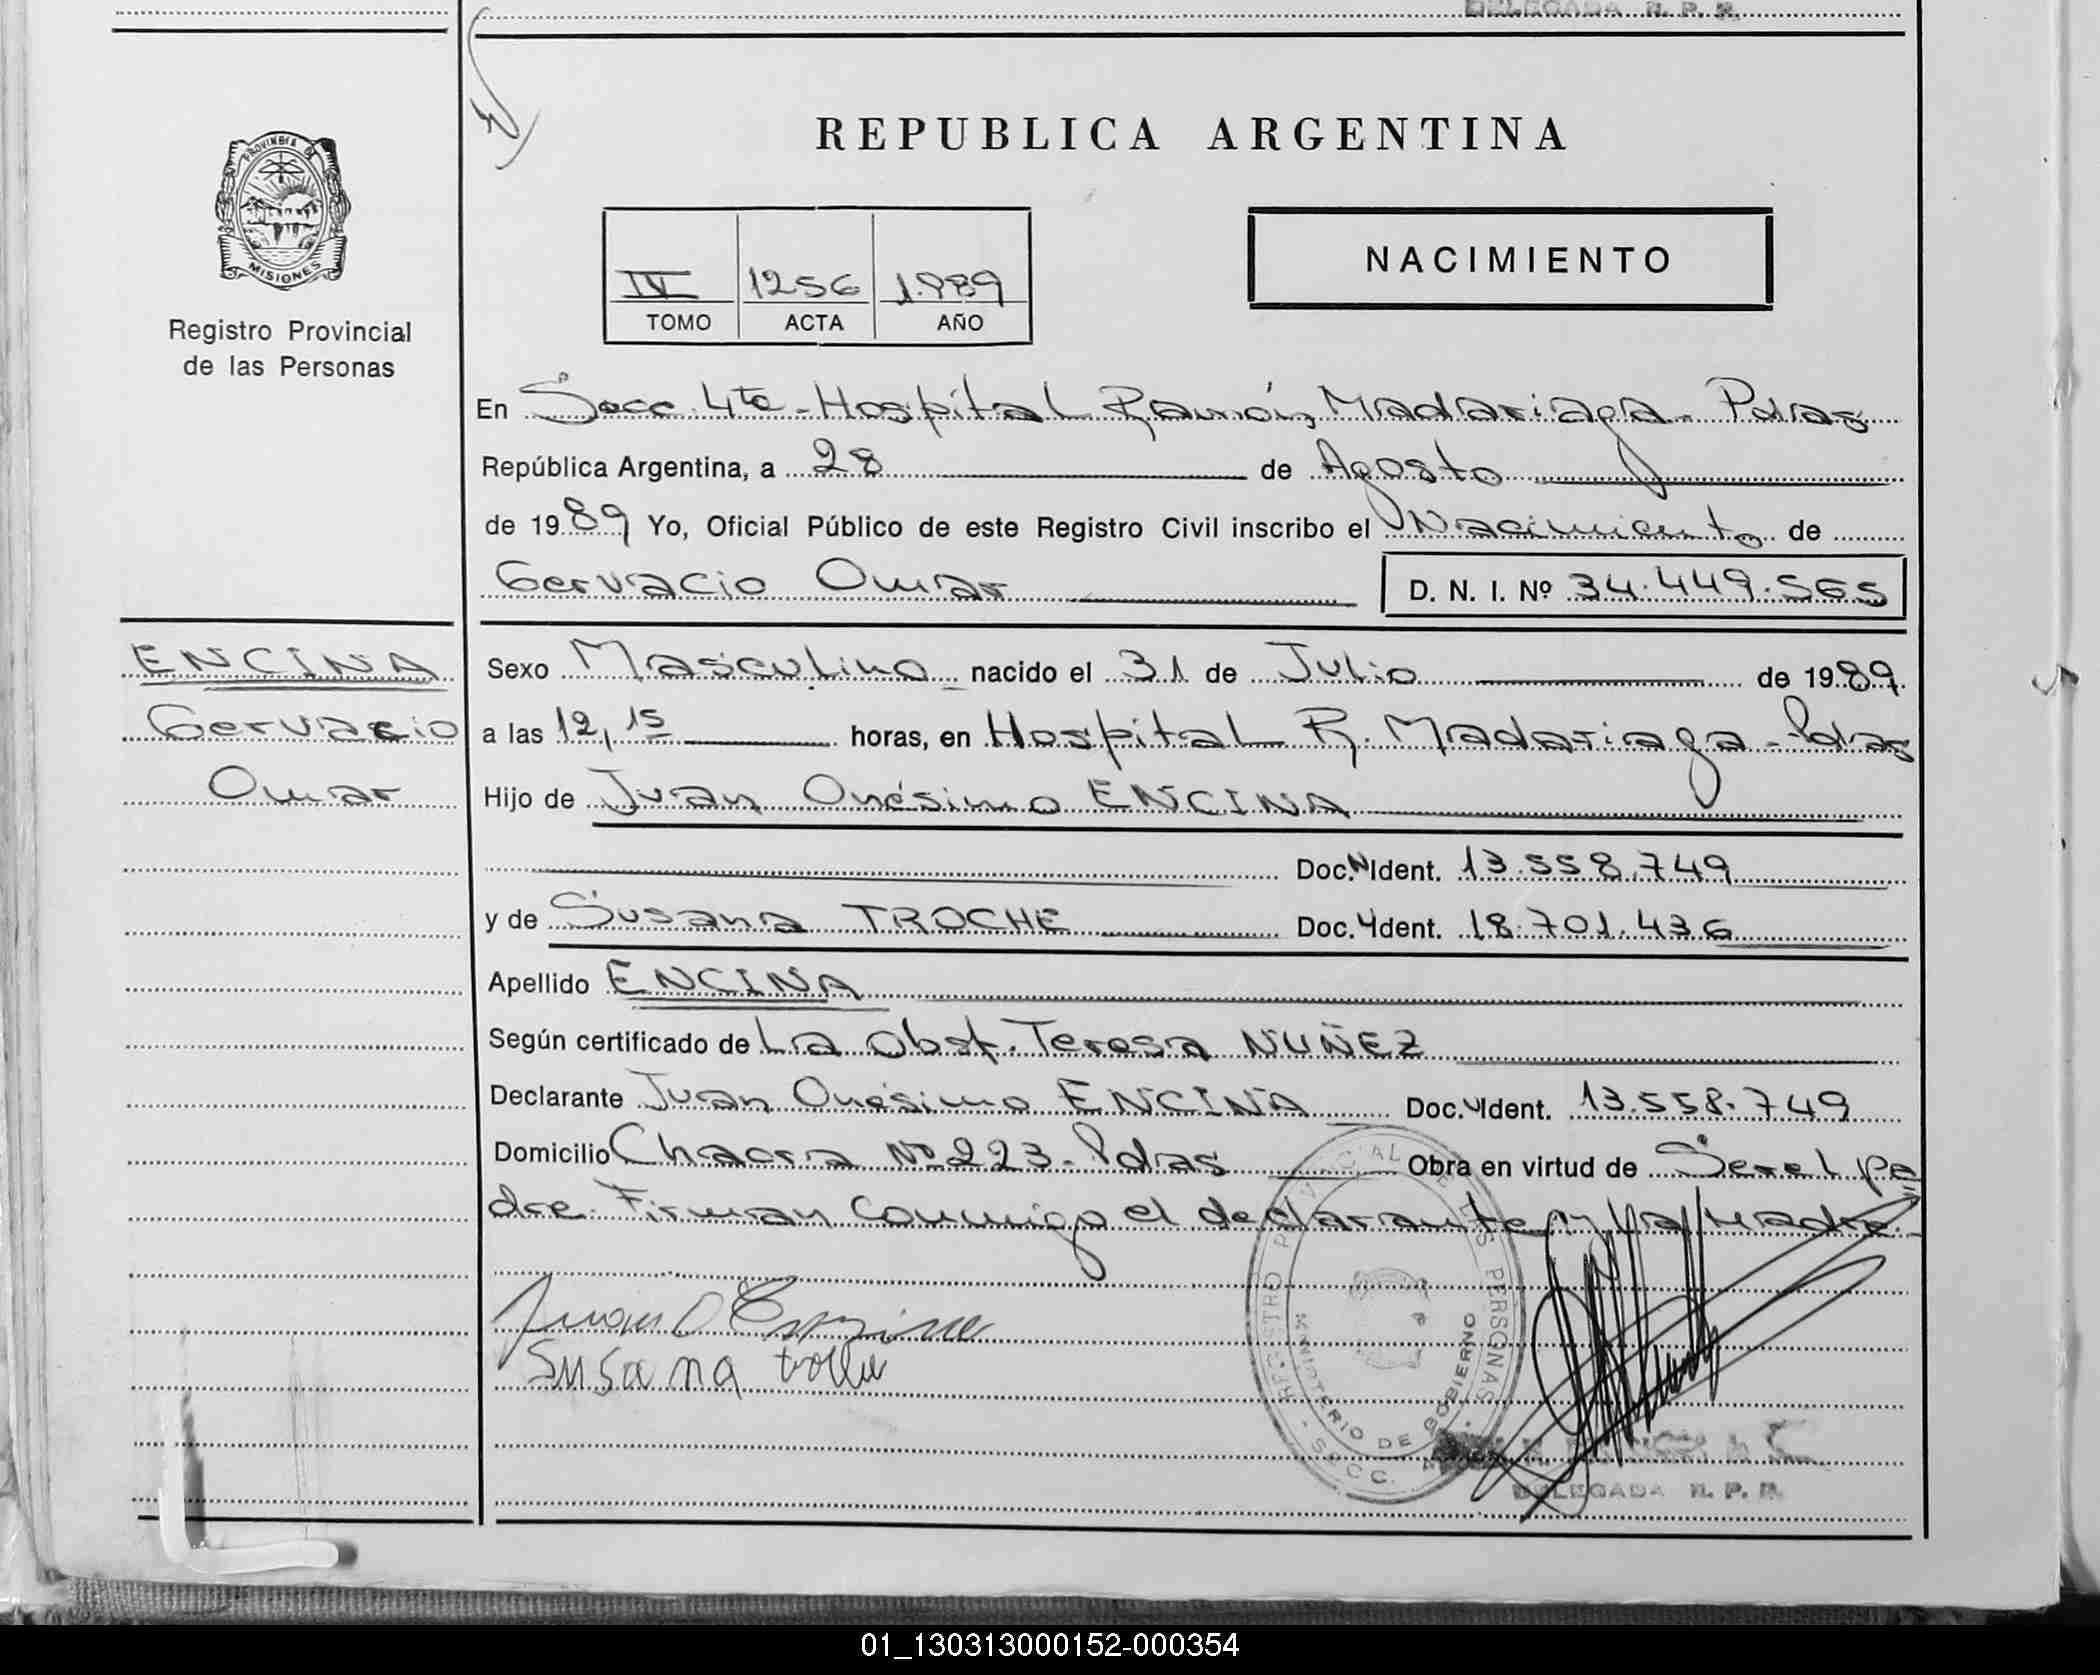 DELEGADA R. P. P.
REPUBLICA ARGENTINA
PROVINCIA DE
MISIONES
Registro Provincial
de las Personas
IV 1256 1.989
TOMO ACTA AÑO
NACIMIENTO
En Secc. 4ta - Hospital Ramón Madariaga - Pdas
República Argentina, a 28 de Agosto
de 1989 Yo, Oficial Público de este Registro Civil inscribo el Nacimiento de
Gervacio Omar D. N. I. Nº 34.449.565
ENCINA
Gervacio
Omar
Sexo Masculino nacido el 31 de Julio de 1989.
a las 12,15 horas, en Hospital R. Madariaga - Pdas
Hijo de Juan Onésimo ENCINA
Doc. N Ident. 13.558.749
y de Susana TROCHE Doc. Ident. 18.701.436
Apellido ENCINA
Según certificado de La Obst. Teresa NUÑEZ
Declarante Juan Onésimo ENCINA Doc. Ident. 13.558.749
Domicilio Chacra Nº 223 - Pdas Obra en virtud de Ser el pa
dre. Firman conmigo el declarante y la Madre.
Juan O Encina
Susana
REGISTRO PROVINCIAL DE LAS PERSONAS
MINISTERIO DE GOBIERNO
SECC.
DELEGADA R. P. P.
01_130313000152-000354